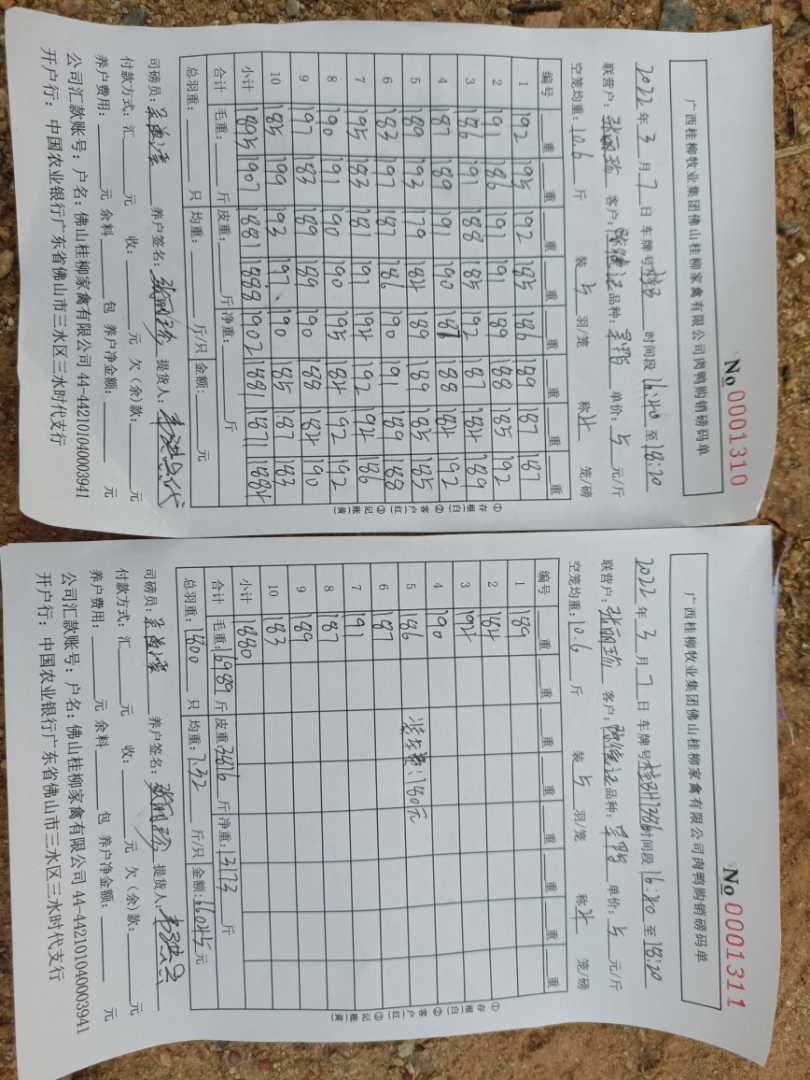 No 0001310
广西桂柳牧业集团佛山桂柳家禽有限公司肉鸭购销磅码单
2022 年 3 月 7 日 车牌号 时间段 16:40 至 18:20
联营户: 客户: 品种: 单价: 5 元/斤
空笼均重: 10.6 斤 装 5 羽/笼 称 笼/磅
编号 重 重 重 重 重 重 重 重
1 192 195 192 185 186 189 187 187
2 191 186 191 191 189 188 185 192
3 186 191 188 185 192 187 184 189
4 187 189 191 190 187 188 184 192
5 189 193 179 184 189 189 185 185
6 183 197 187 186 190 191 189 188
7 195 183 181 191 194 192 194 186
8 190 191 190 190 195 184 192 192
9 197 183 189 189 190 188 184 190
10 185 199 193 197 190 185 187 183
小计 1895 1907 1881 1888 1902 1881 1871 1884
合计 毛重: 斤 皮重: 斤 净重: 斤
总羽重: 只 均重: 斤/只 金额: 元
①存根(白) ②客户(红) ③记账(黄)
司磅员: 养户签名: 提货人:
付款方式: 汇 元 收: 元 欠(余)款: 元
养户费用: 元 余料 包 养户净金额: 元
公司汇款账号: 户名: 佛山桂柳家禽有限公司 44-442101040003941
开户行: 中国农业银行广东省佛山市三水区三水时代支行
No 0001311
广西桂柳牧业集团佛山桂柳家禽有限公司肉鸭购销磅码单
2022 年 3 月 7 日 车牌号 时间段 16:40 至 18:20
联营户: 客户: 品种: 单价: 5 元/斤
空笼均重: 10.6 斤 装 5 羽/笼 称 笼/磅
编号 重 重 重 重 重 重 重 重
1 189
2 184
3 194
4 190
5 186 装车费:180元
6 187
7 191
8 187
9 189
10 183
小计 1880
合计 毛重: 16989 斤 皮重: 3816 斤 净重: 13173 斤
总羽重: 1800 只 均重: 7.32 斤/只 金额: 66045 元
①存根(白) ②客户(红) ③记账(黄)
司磅员: 养户签名: 提货人:
付款方式: 汇 元 收: 元 欠(余)款: 元
养户费用: 元 余料 包 养户净金额: 元
公司汇款账号: 户名: 佛山桂柳家禽有限公司 44-442101040003941
开户行: 中国农业银行广东省佛山市三水区三水时代支行